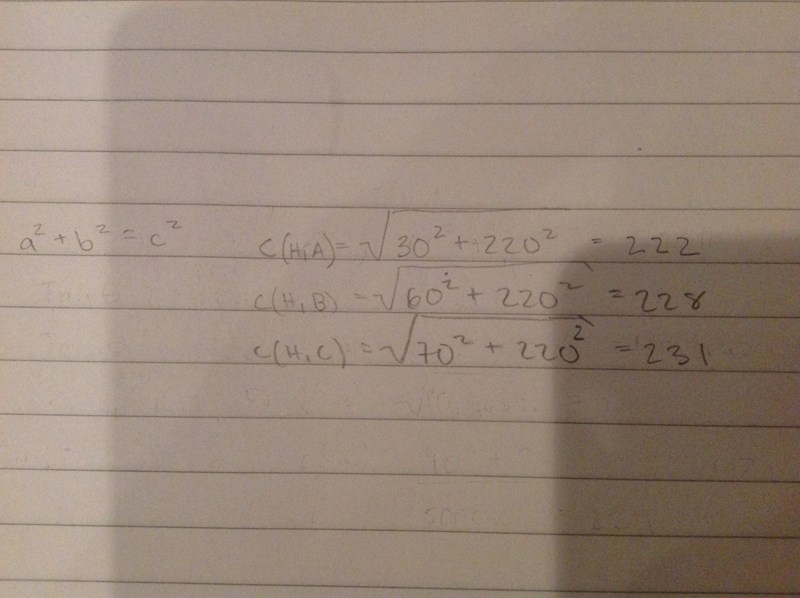 a² + b² = c² c(H,A) = √30² + 220² = 222
c(H,B) = √60² + 220² = 228
c(H,C) = √70² + 220² = 231